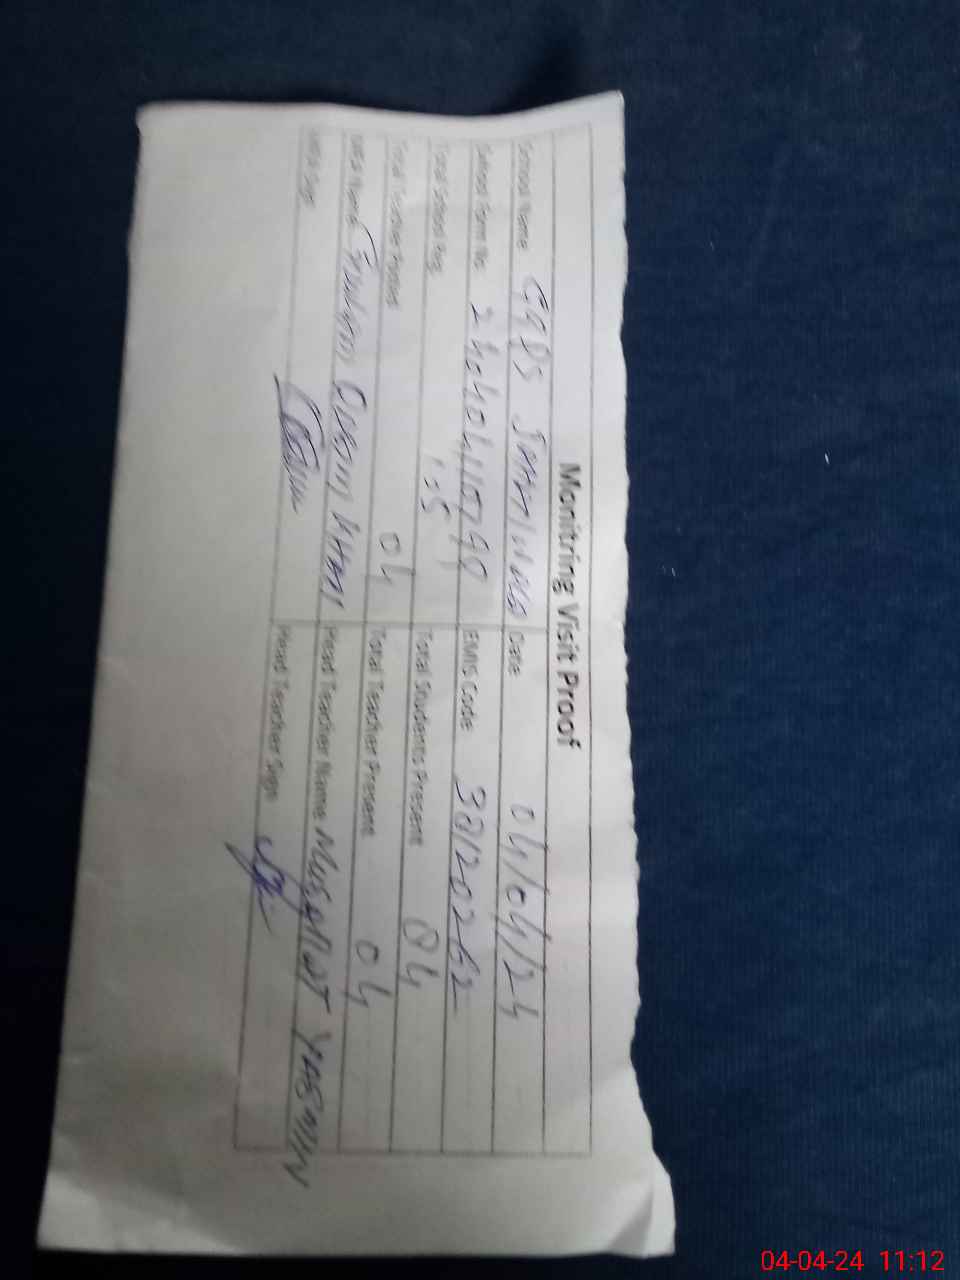 Monitring Visit Proof
School Name GGPS Date 04/04/24
School Form No EMIS Code 38120262
Total School Reg Total Students Present 04
Total Teacher Posted 04 Total Teacher Present 04
Name Ghulam Qasim Khan Head Teacher Name Musarrat Yasmin
Sign Head Teacher Sign
04-04-24 11:12